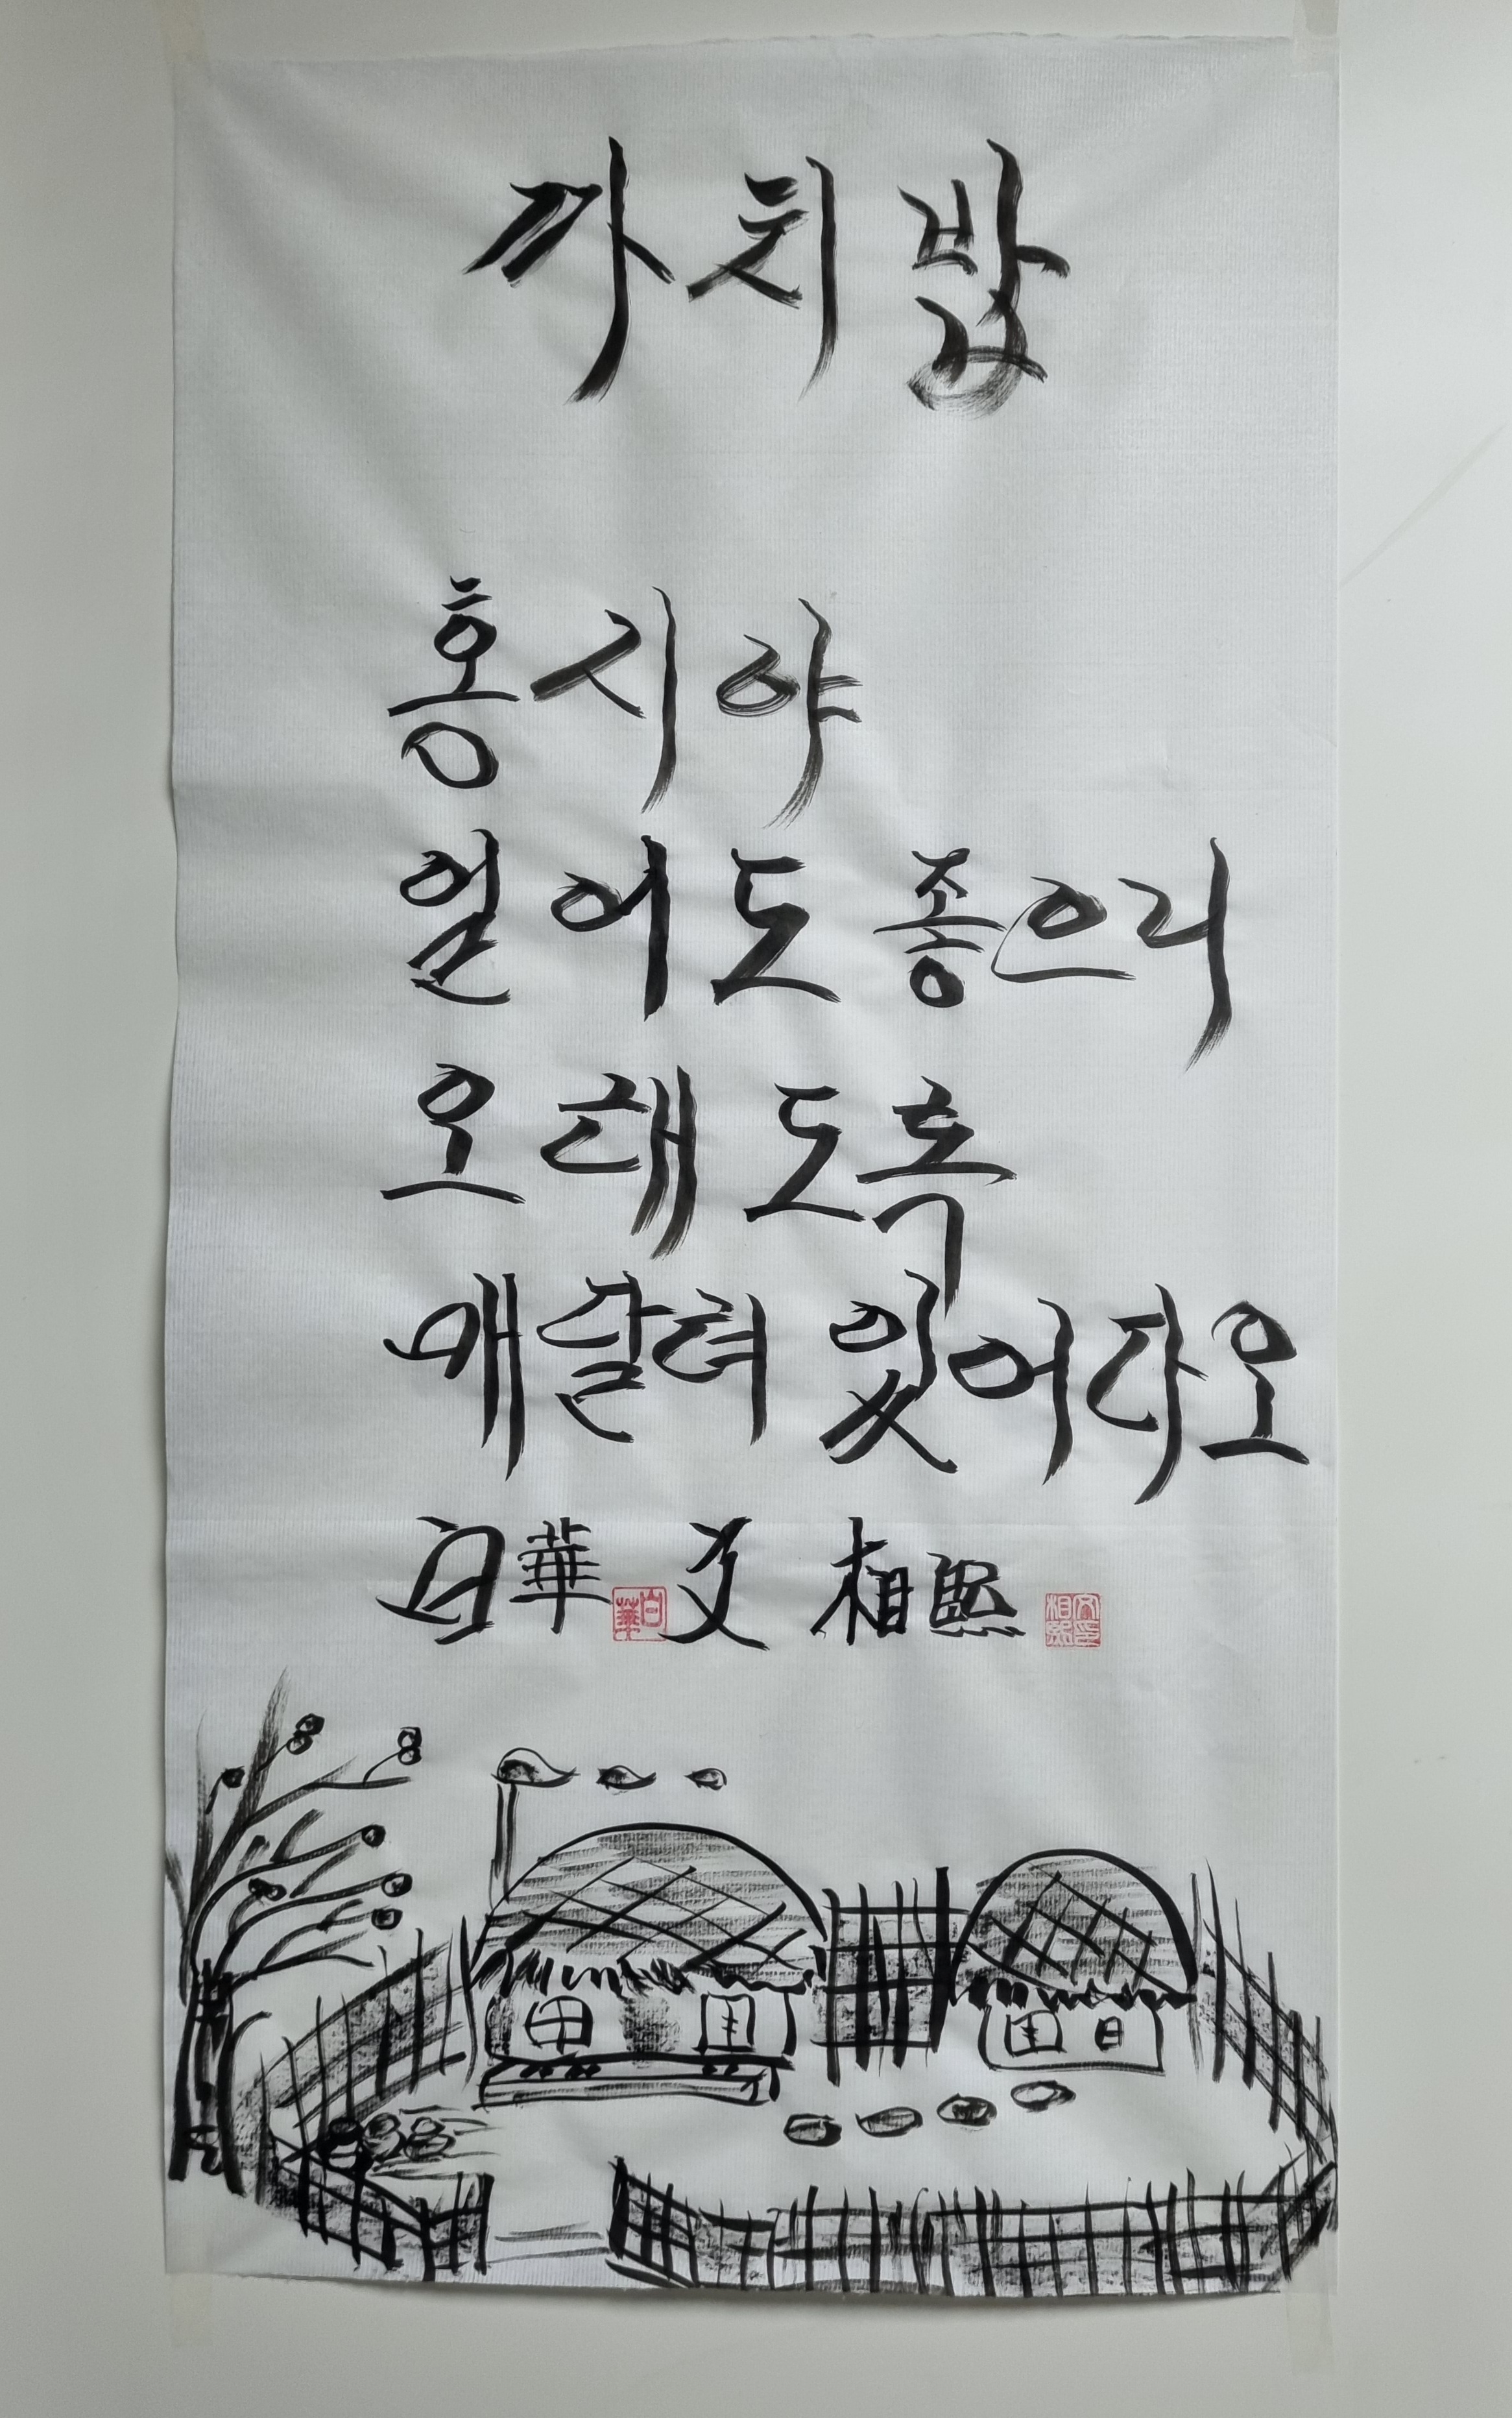 까치밥
홍시야
얼어도 좋으리
오래도록
매달려 있어다오
白華 白華 文 相熙 文相熙印